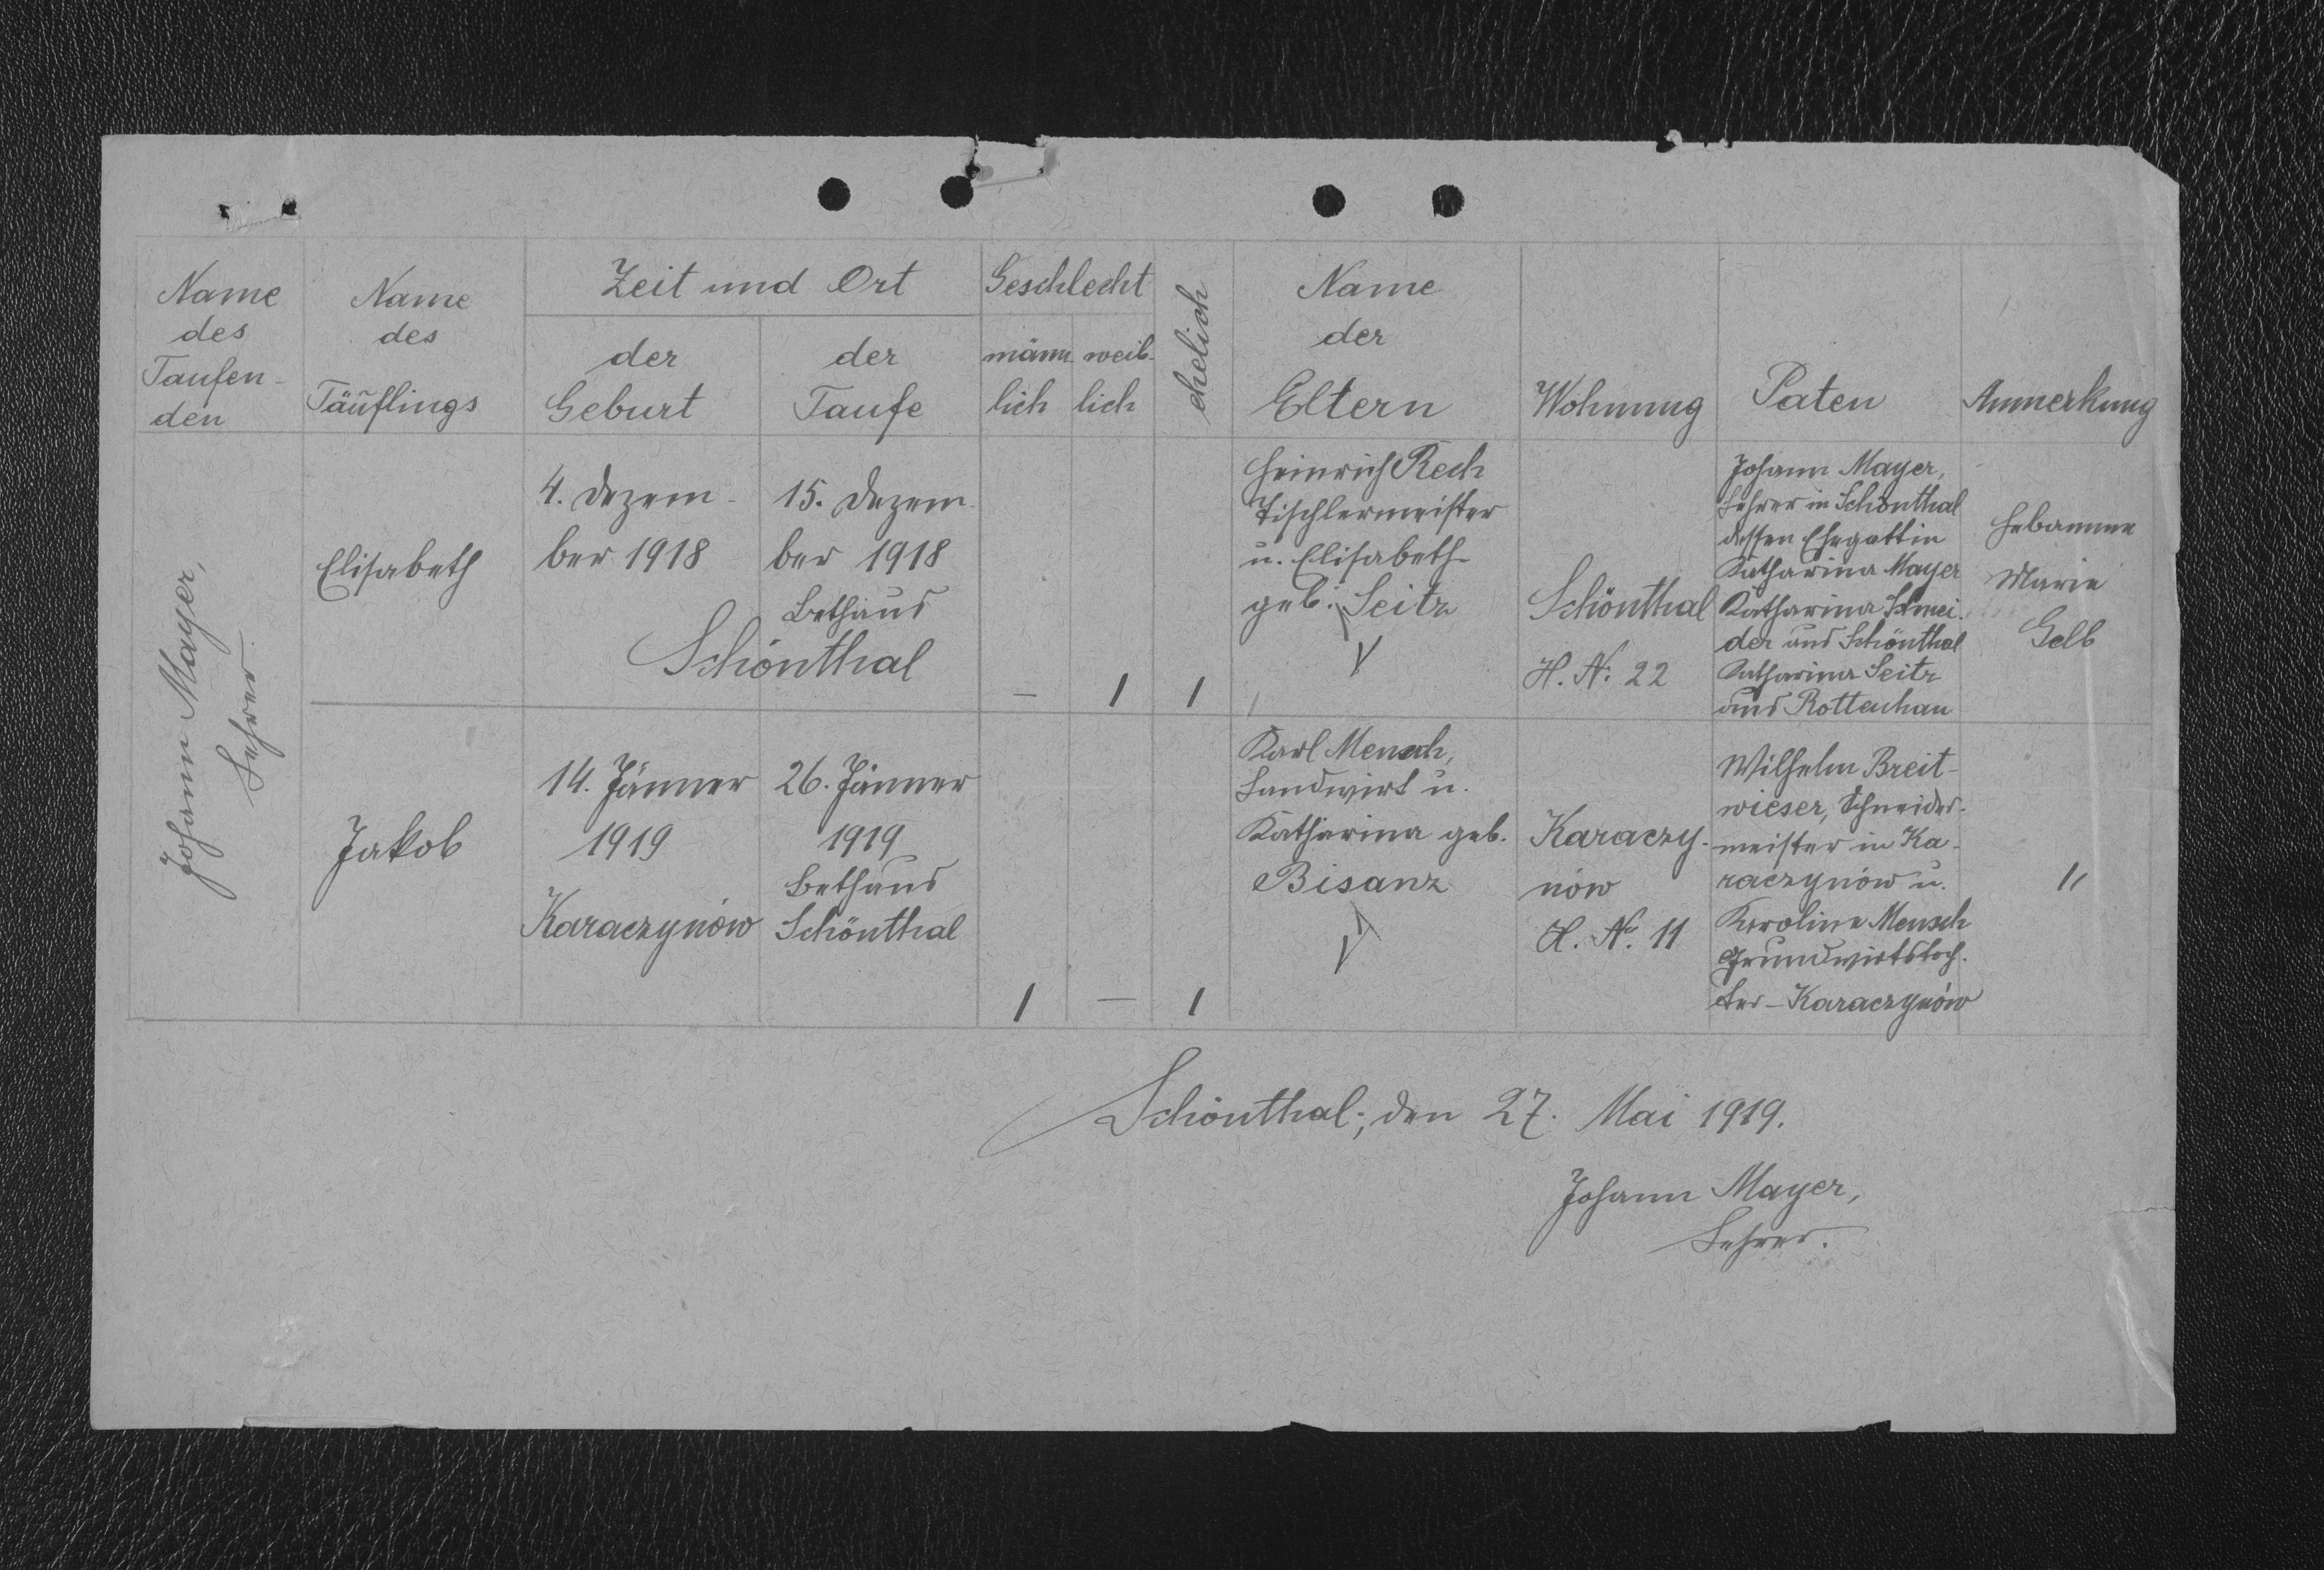 Name
des
Taufen-
den
Name
des
Täuflings
Zeit und Ort
der
Geburt
der
Taufe
Geschlecht
männ-
lich
weib-
lich
ehelich
Name
der
Eltern
Wohnung
Paten
Anmerkung
Johann Mayer,
Lehrer
Elisabeth
4. Dezem-
ber 1918
15. Dezem-
ber 1918
Bethaus
Schönthal
—
1
1
Heinrich Rech
Tischlermeister
u. Elisabeth
geb. Seitz
Schönthal
H. N: 22
Johann Mayer,
Lehrer in Schönthal
dessen Ehegattin
Katharina Mayer
Katharina Schnei-
der aus Schönthal
Katharina Seitz
aus Rottenhan
Hebamme
Marie
Gelb
Jakob
14. Jänner
1919
Karaczynów
26. Jänner
1919
Bethaus
Schönthal
1
—
1
Karl Mensch,
Landwirt u.
Katharina geb.
Bisanz
Karaczy-
nów
H. No. 11
Wilhelm Breit-
wieser, Schneider-
meister in Ka-
raczynów u.
Karoline Mensch
Grundwirtstoch-
ter - Karaczynów
"
Schönthal, den 27. Mai 1919.
Johann Mayer,
Lehrer.